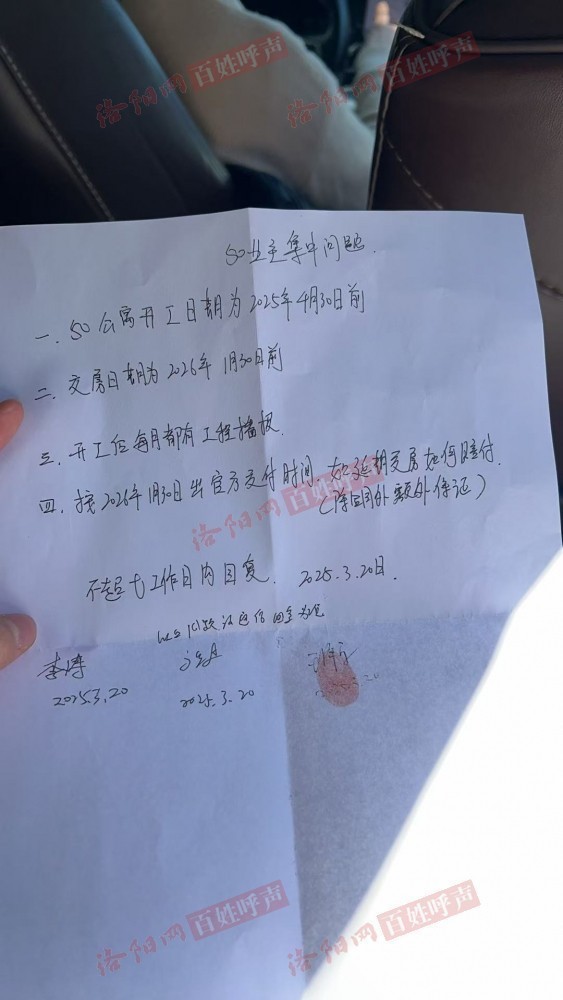 洛阳网 百姓呼声
洛阳网 百姓呼声
50业主集中问题.
一. 50公寓开工日期为2025年4月30日前
二. 交房日期为2026年1月30日前
三. 开工后每月都有工程播报.
四. 按2026年1月30日出官方交付时间. 如延期交房如何赔付.
(除合同外额外保证)
洛阳网 百姓呼声
不超七工作日内回复. 2025.3.20日.
李涛
2025.3.20
2025.3.20
洛阳网 百姓呼声
洛阳网 百姓呼声